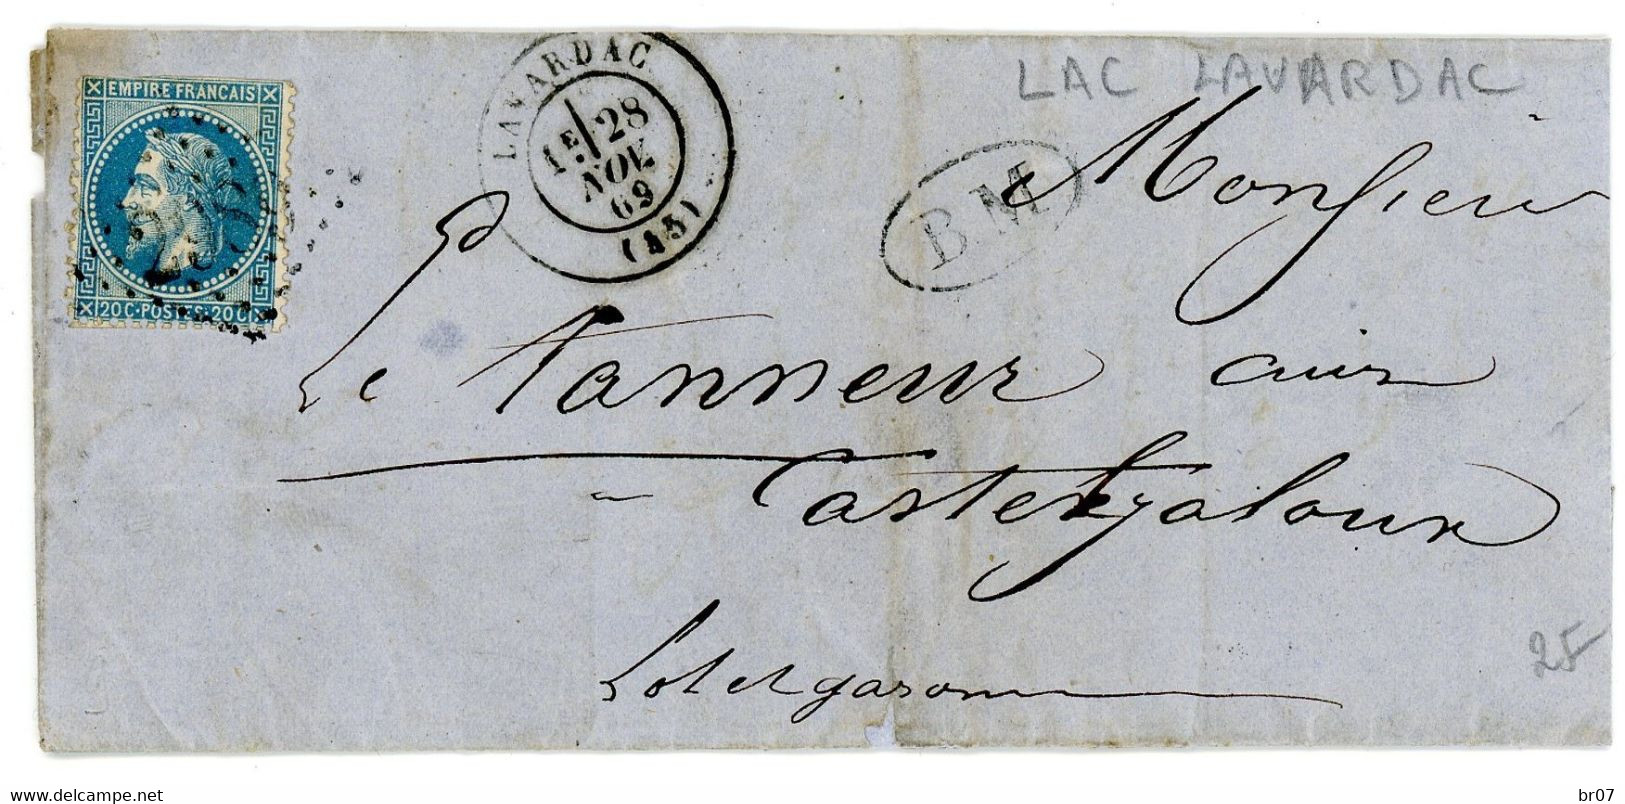 LAC LAVARDAC
EMPIRE FRANCAIS
20C·POSTES·20C
LAVARDAC
1E 28
NOV.
69
(45)
B.M
Monsieur
Le tanneur cuirs
Castelgaloux
Lot et garonne
25
www.delcampe.net
br07